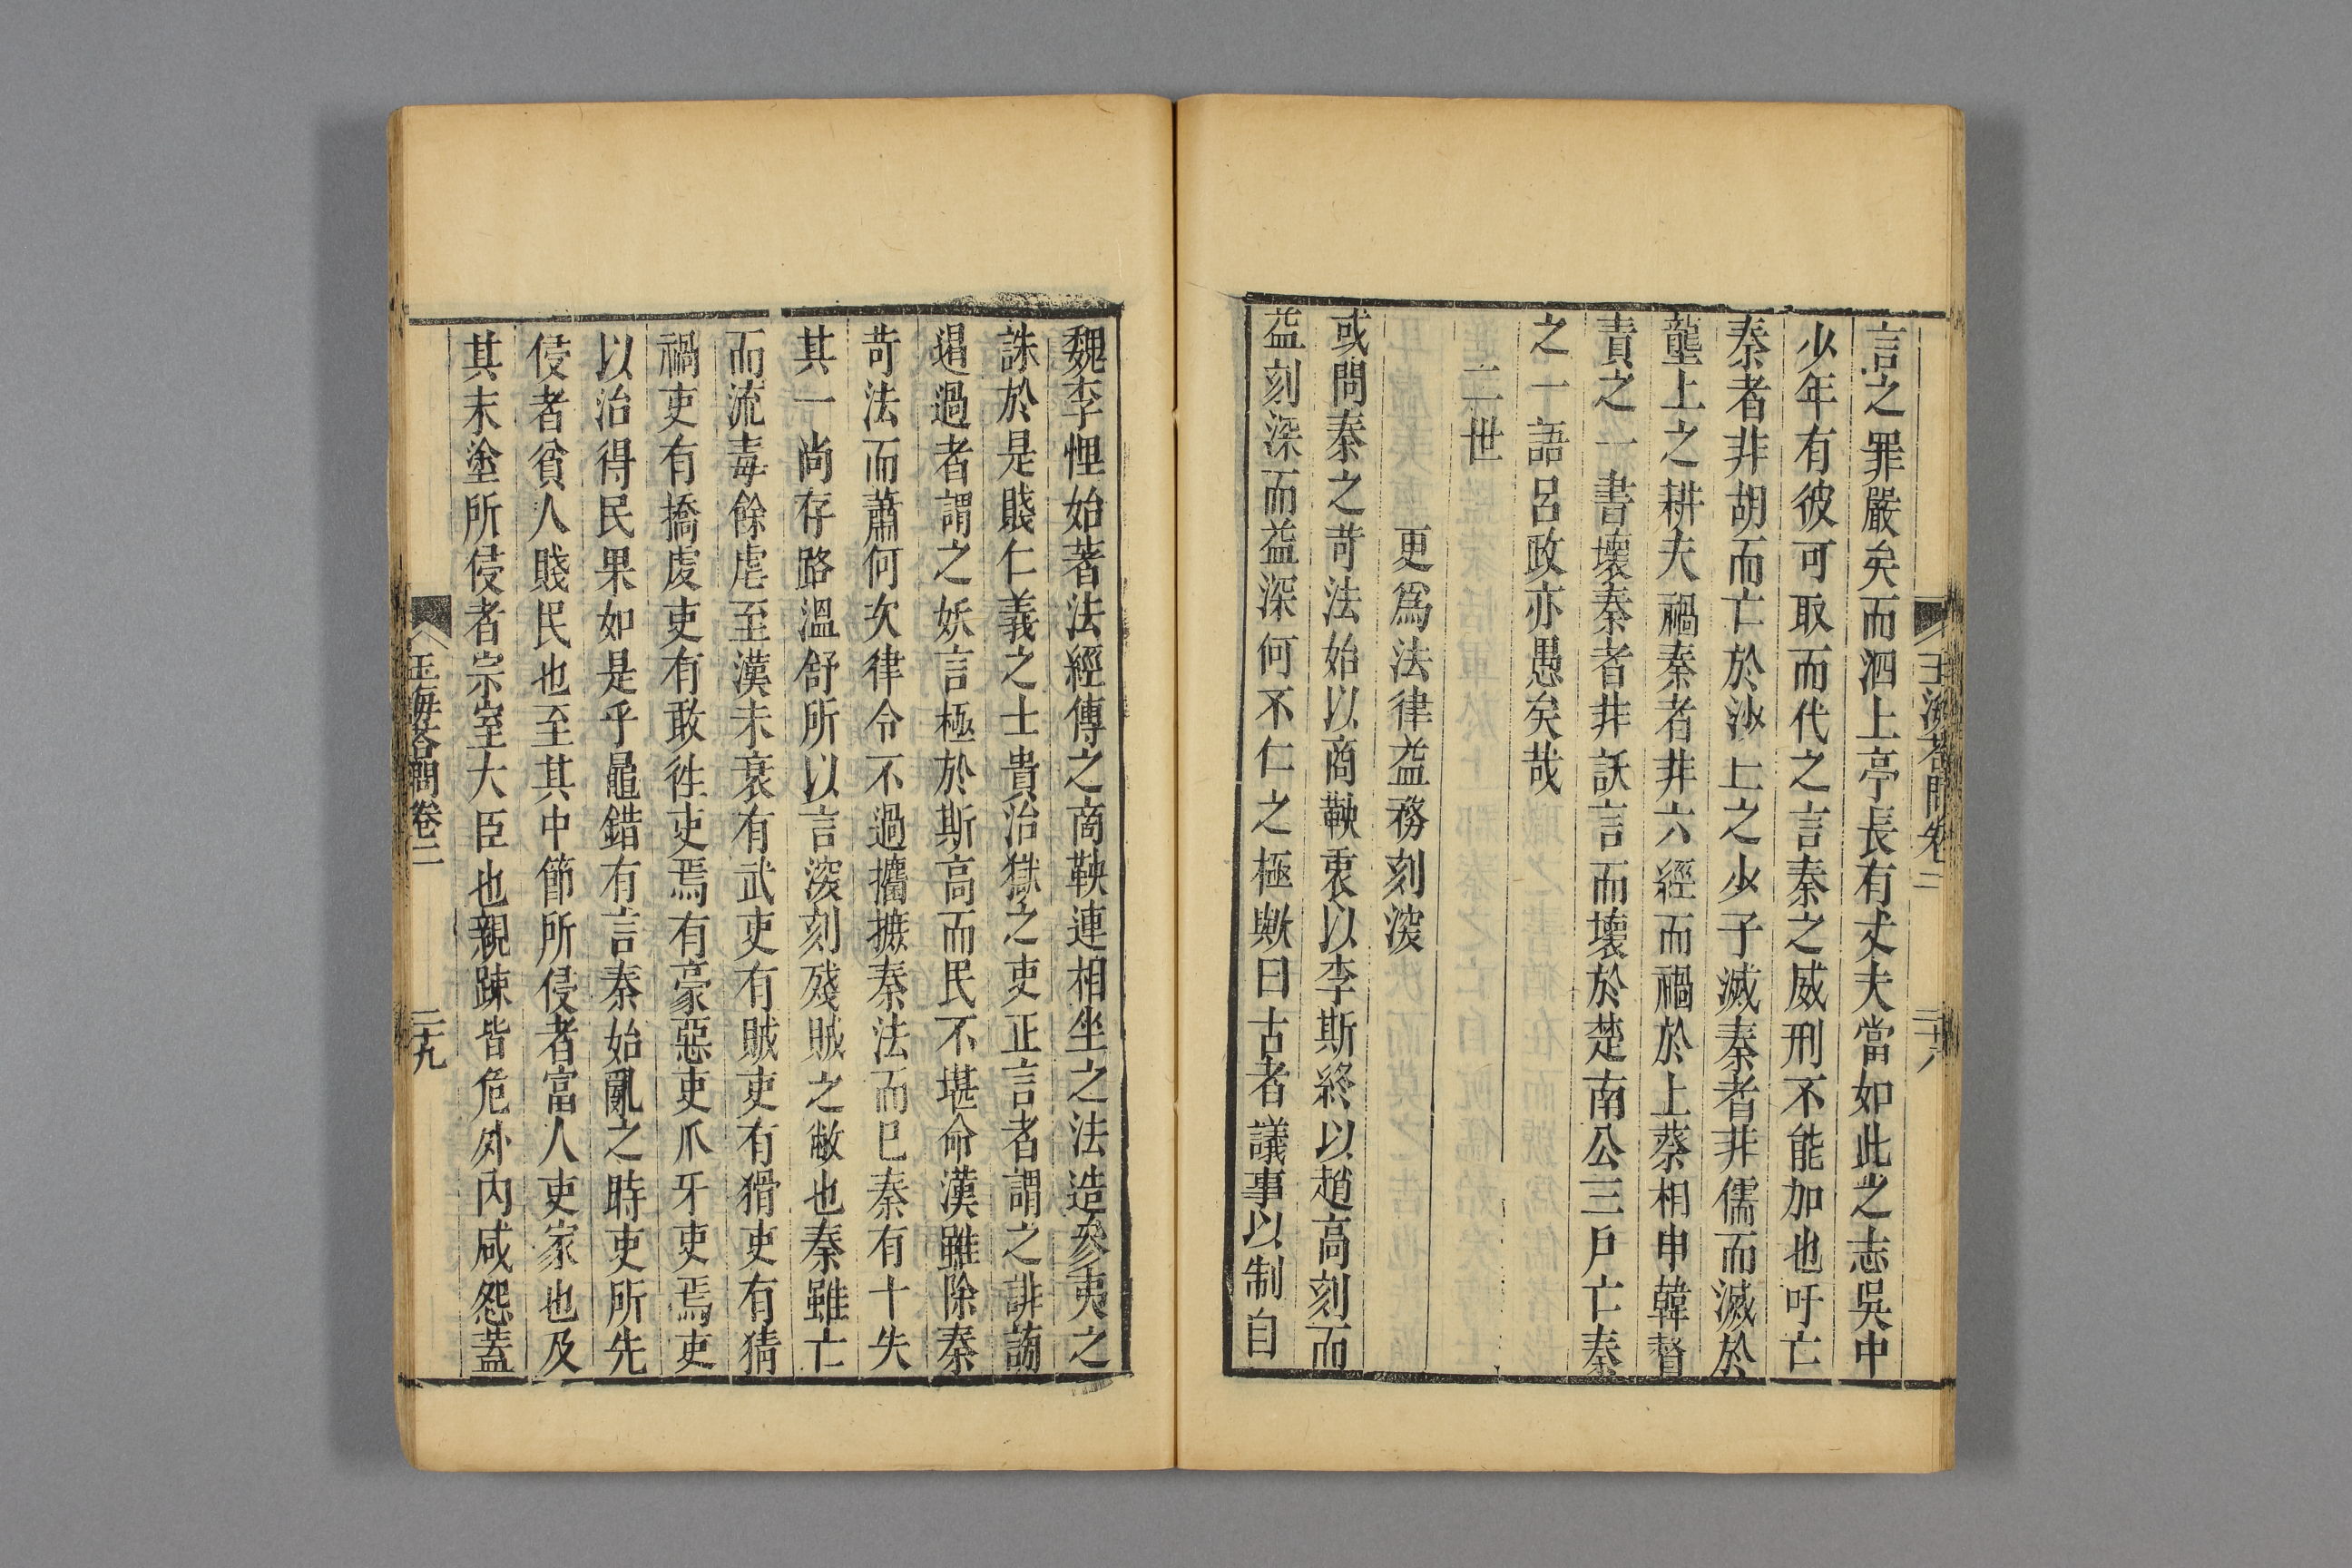 玉海荅問卷二
二十八
言之罪嚴矣而泗上亭長有丈夫當如此之志吳中
少年有彼可取而代之言秦之威刑不能加也吁亡
秦者非胡而亡於沙上之少子滅秦者非儒而滅於
壟上之耕夫禍秦者非六經而禍於上蔡相申韓督
責之一書壞秦者非訞言而壞於楚南公三戶亡秦
之一語呂政亦愚矣哉
二世
更爲法律益務刻深
或問秦之苛法始以商鞅衷以李斯終以趙高刻而
益刻深而益深何不仁之極歟曰古者議事以制自
魏李悝始著法經傳之商鞅連相坐之法造參夷之
誅於是賤仁義之士貴治獄之吏正言者謂之誹謗
遏過者謂之妖言極於斯高而民不堪命漢雖除秦
苛法而蕭何次律令不過攟摭秦法而已秦有十失
其一尚存路溫舒所以言深刻殘賊之敝也秦雖亡
而流毒餘虐至漢未衰有武吏有賊吏有猾吏有猜
禍吏有撟虔吏有敢徃吏焉有豪惡吏爪牙吏焉吏
以治得民果如是乎鼂錯有言秦始亂之時吏所先
侵者貧人賤民也至其中節所侵者富人吏家也及
其末塗所侵者宗室大臣也親踈皆危外內咸怨蓋
玉海荅問卷二
二十九